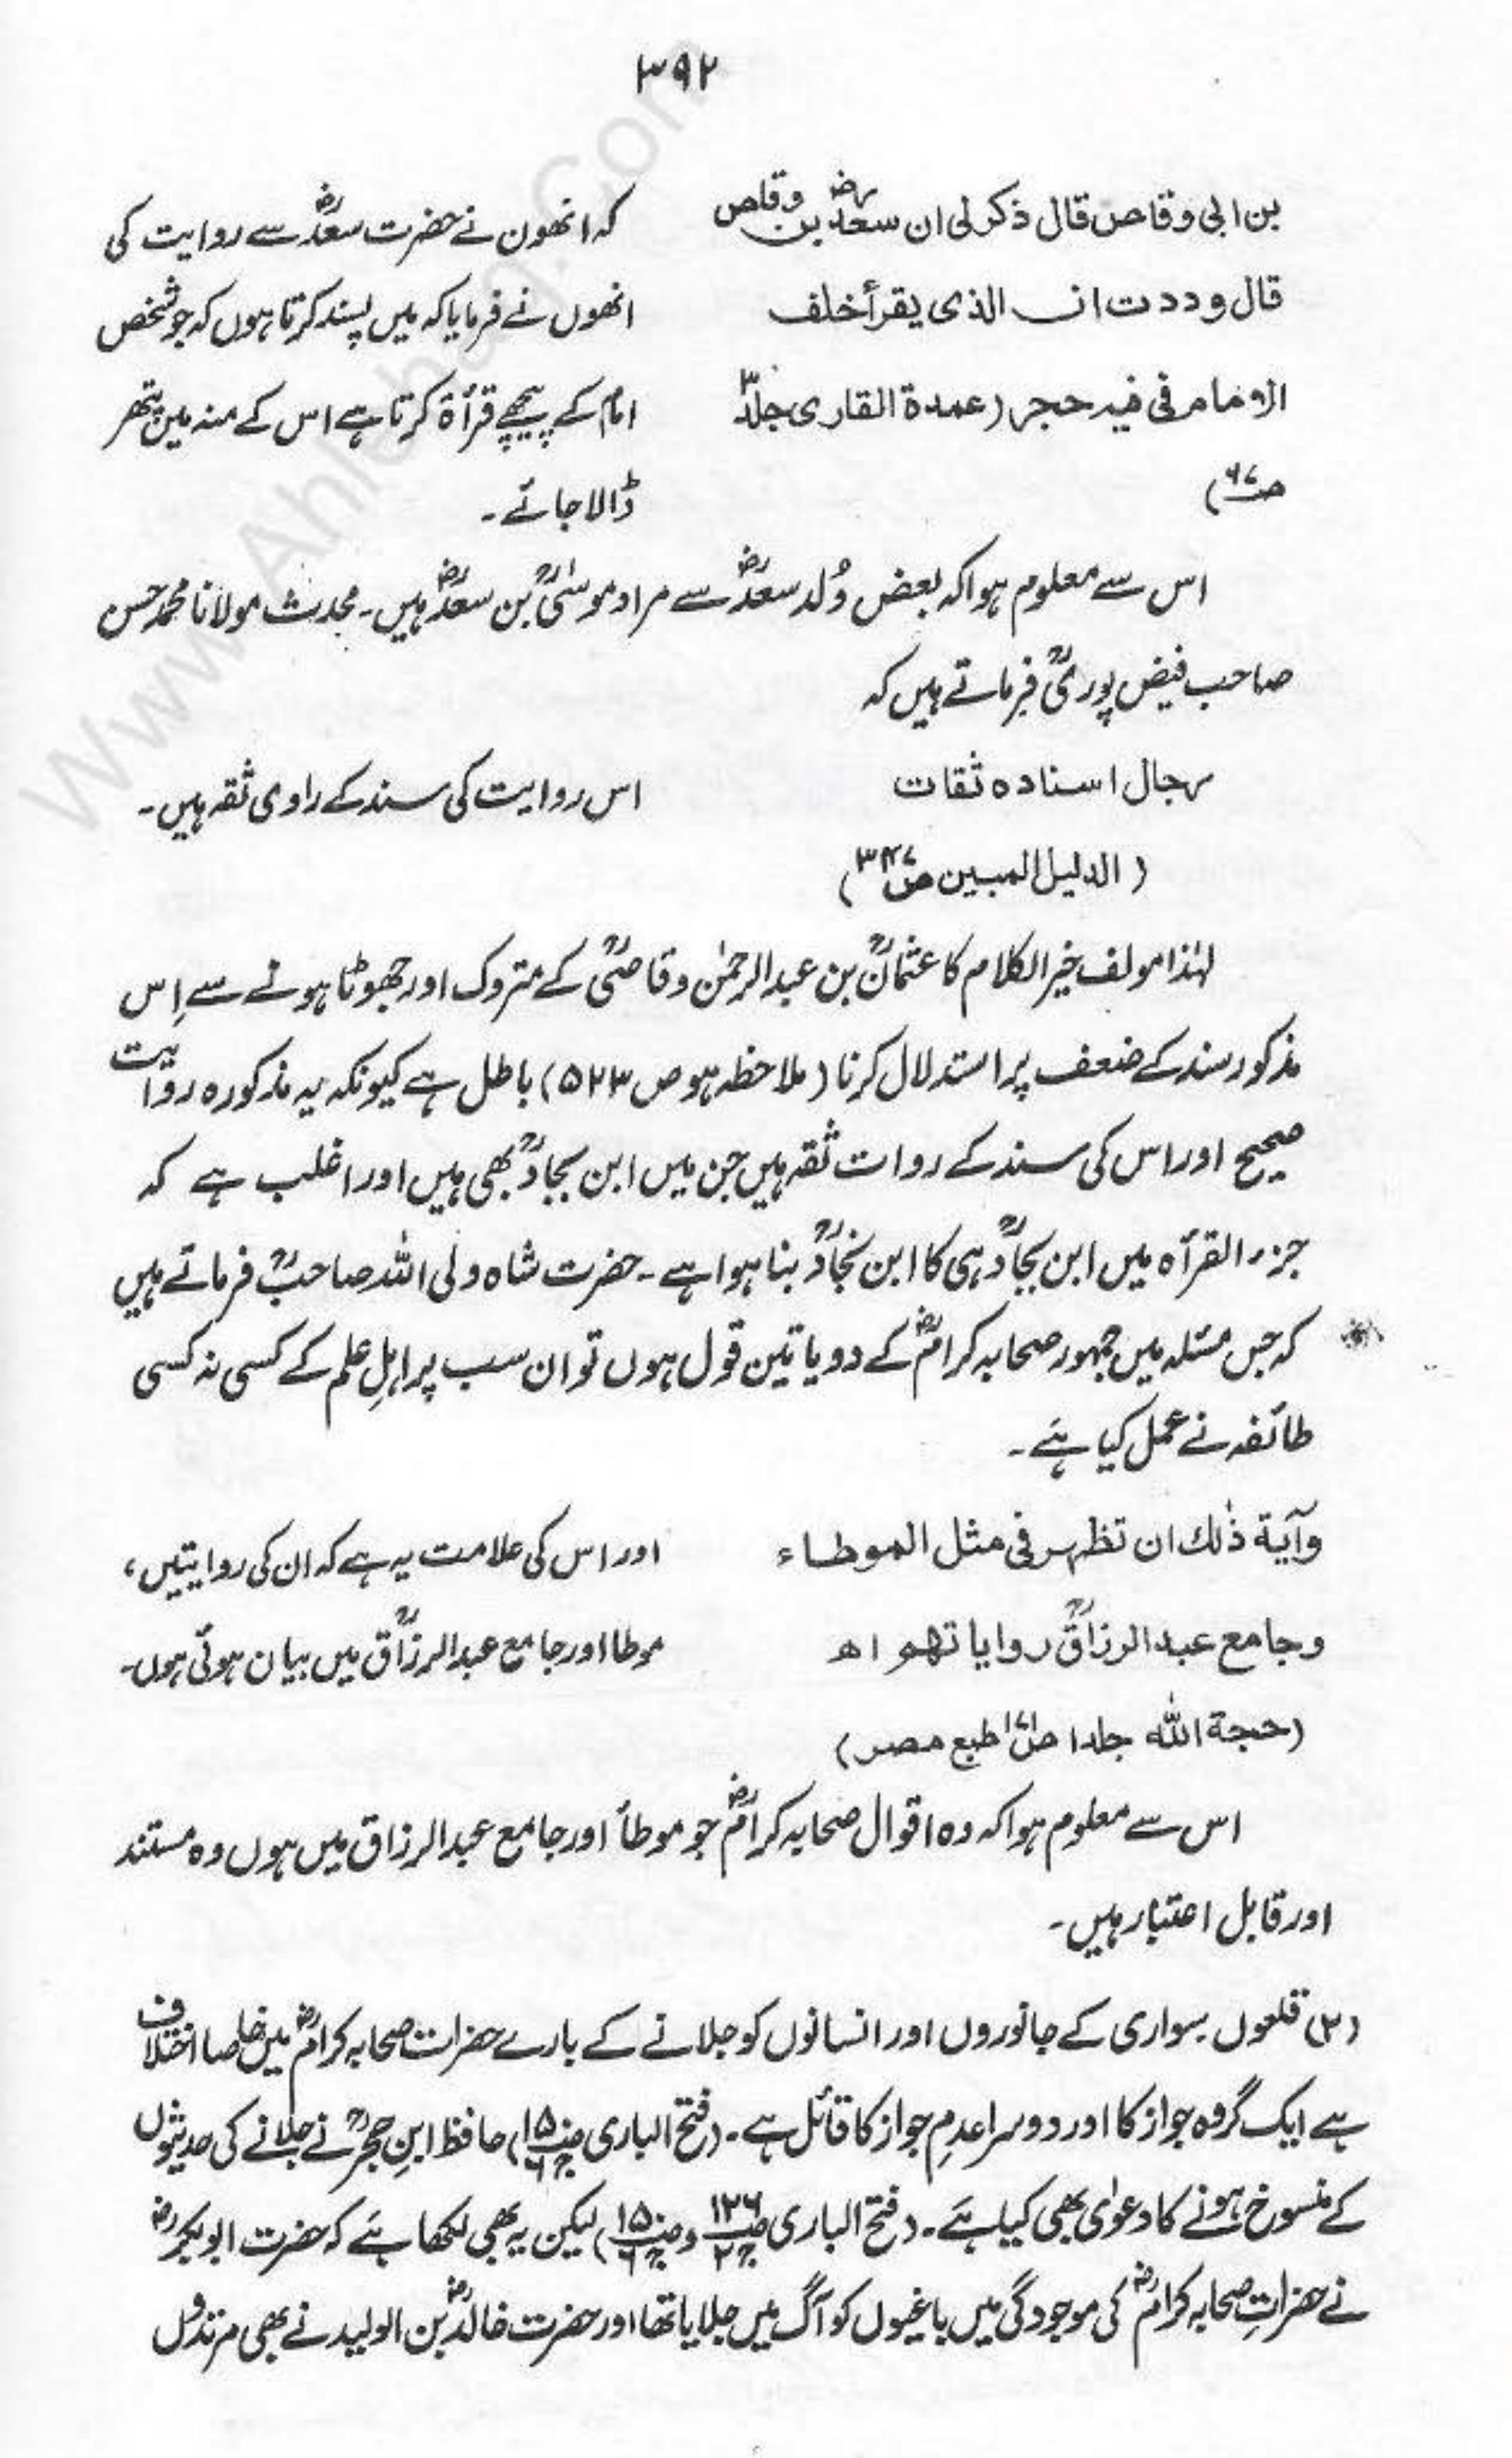 ۳۹۲
بن ابی وقاص قال ذکر لی ان سعدؓ بن وقاص
کہ انھوں نے حضرت سعدؓ سے روایت کی
قال وددت ان الذی یقرأ خلف
انھوں نے فرمایا کہ میں پسند کرتا ہوں کہ جو شخص
الامام فی فیہ حجر (عمدۃ القاری جلد ۳
امام کے پیچھے قرأۃ کرتا ہے اس کے منہ میں پتھر
ص ۶۷)
ڈالا جائے۔
اس سے معلوم ہوا کہ بعض وُلد سعدؓ سے مراد موسٰیؒ بن سعدؓ ہیں۔ محدث مولانا محمد حسن
صاحب فیض پوریؒ فرماتے ہیں کہ
رجال اسنادہ ثقات
اس روایت کی سند کے راوی ثقہ ہیں۔
(الدلیل المبین ص ۳۴۷)
لہٰذا مولف خیر الکلام کا عثمانؒ بن عبدالرحمٰن وقاصیؒ کے متروک اور جھوٹا ہونے سے اِس
مذکور سند کے ضعف پر استدلال کرنا (ملاحظہ ہو ص ۵۲۳) باطل ہے کیونکہ یہ مذکورہ روایت
صحیح اور اس کی سند کے روات ثقہ ہیں جن میں ابن بجادؒ بھی ہیں اور اغلب ہے کہ
جزء القرأۃ میں ابن بجادؒ ہی کا ابن نجادؒ بنا ہوا ہے۔ حضرت شاہ ولی اللہ صاحبؒ فرماتے ہیں
کہ جس مسئلہ میں جمہور صحابہ کرامؓ کے دو یا تین قول ہوں تو ان سب پر اہلِ علم کے کسی نہ کسی
طائفہ نے عمل کیا ہے۔
وآیۃ ذٰلک ان تظہر فی مثل الموطاء
اور اس کی علامت یہ ہے کہ ان کی روایتیں،
وجامع عبدالرزاقؒ روایاتھم اھ
موطا اور جامع عبدالرزاقؒ میں بیان ہوئی ہوں۔
(حجۃ اللّٰہ جلد ۱ ص ۱۷۱ طبع مصر)
اس سے معلوم ہوا کہ وہ اقوال صحابہ کرامؓ جو موطأ اور جامع عبدالرزاق میں ہوں وہ مستند
اور قابل اعتبار ہیں۔
(۲) قلعوں سواری کے جانوروں اور انسانوں کو جلانے کے بارے حضرات صحابہ کرامؓ میں خاصا اختلاف
ہے ایک گروہ جواز کا اور دوسرا عدمِ جواز کا قائل ہے۔ (فتح الباری ص ۱۵۰ ج ۶) حافظ ابنِ حجرؒ نے جلانے کی حدیثوں
کے منسوخ ہونے کا دعوٰی بھی کیا ہے۔ (فتح الباری ص ۱۲۶ ج ۲ و ص ۱۵۰ ج ۶) لیکن یہ بھی لکھا ہے کہ حضرت ابوبکرؓ
نے حضراتِ صحابہ کرامؓ کی موجودگی میں باغیوں کو آگ میں جلایا تھا اور حضرت خالدؓ بن الولید نے بھی مرتدوں